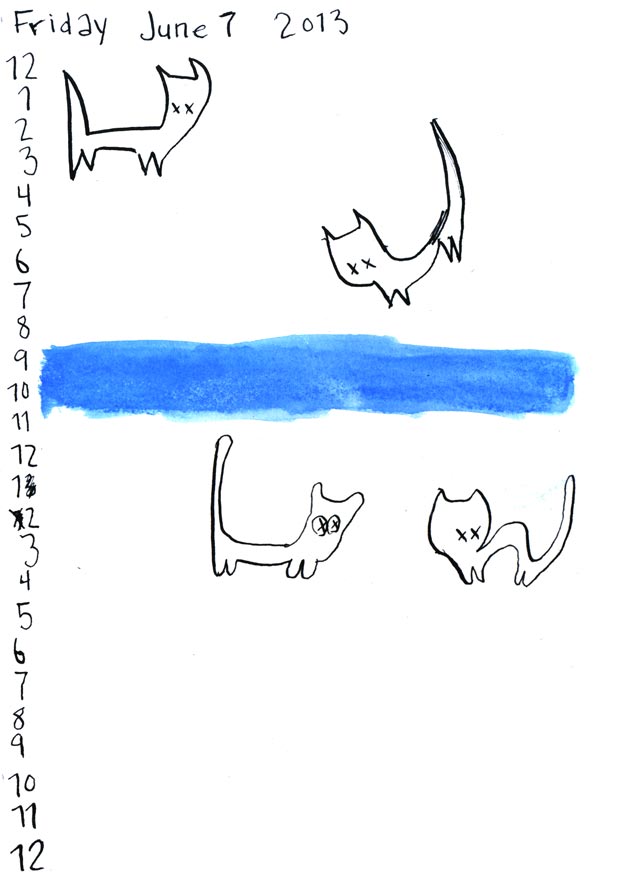 Friday June 7 2013
12
1
2
3
4
5
6
7
8
9
10
11
12
1
2
3
4
5
6
7
8
9
10
11
12